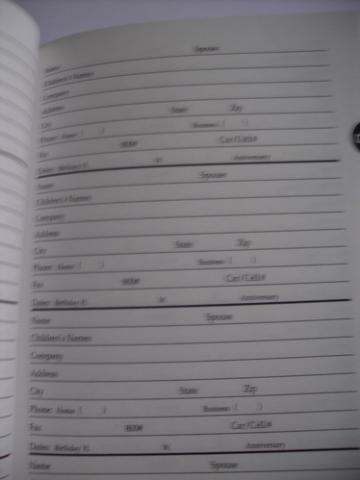 Name Spouse
Children's Names
Company
Address
City State Zip
Phone: Home ( ) Business ( )
Fax 800# Car/Cell#
Dates: Birthday H) W) Anniversary
Name Spouse
Children's Names
Company
Address
City State Zip
Phone: Home ( ) Business ( )
Fax 800# Car/Cell#
Dates: Birthday H) W) Anniversary
Name Spouse
Children's Names
Company
Address
City State Zip
Phone: Home ( ) Business ( )
Fax 800# Car/Cell#
Dates: Birthday H) W) Anniversary
Name Spouse